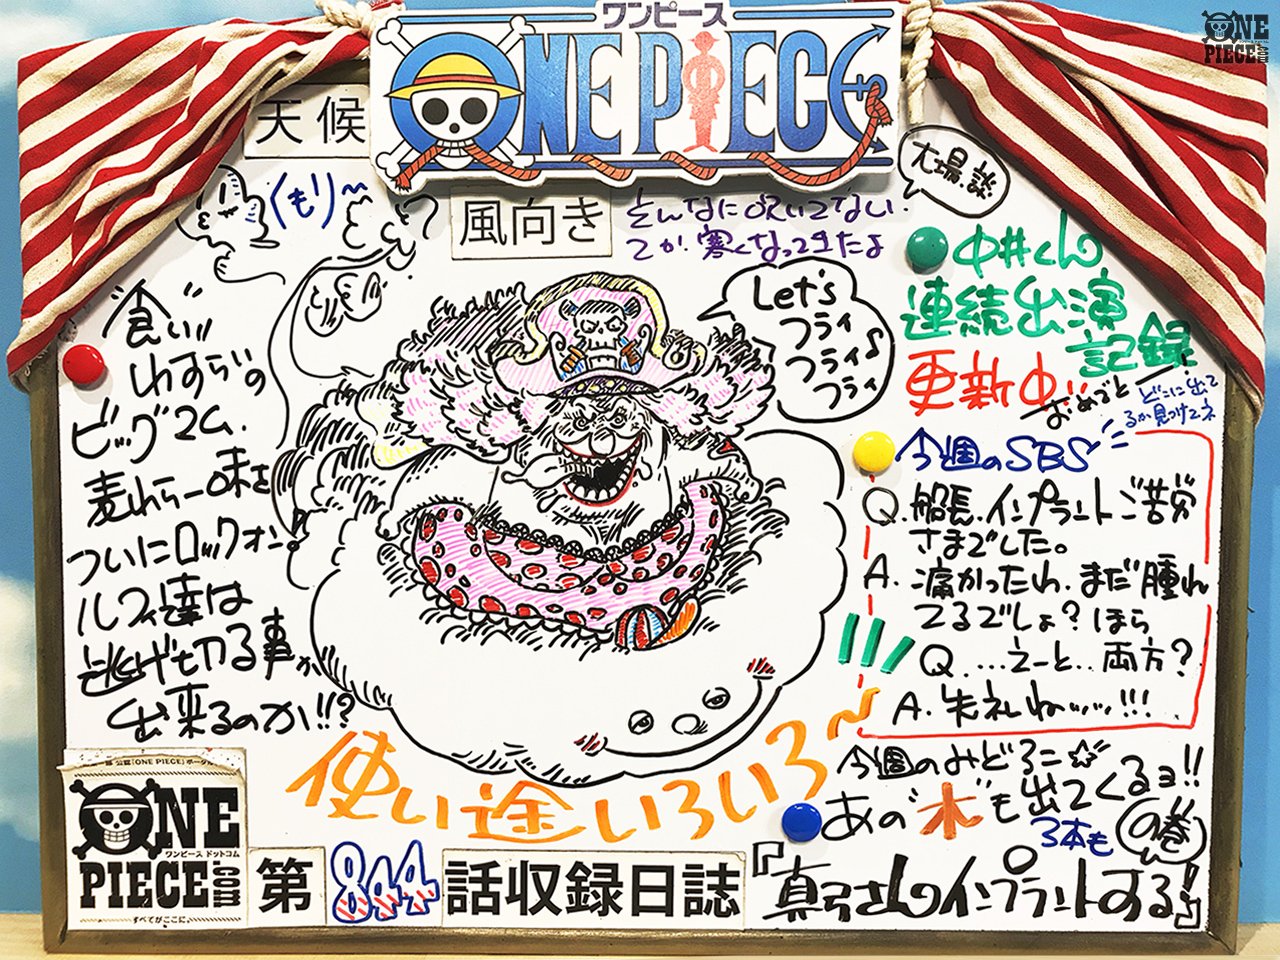 ワンピース
ONE PIECE
ONE
PIECE.com
天候
くもり〜
風向き
そんなに吹いてない
てか、寒くなってきたよ
大場.談
中井くん
連続出演
記録
更新中!!
おめでと
どこに出て
るか見つけてネ
"食い"
わずらいの
ビッグマム.
麦わら一味を
ついにロックオン!
ルフィ達は
逃げ切る事が
出来るのか!!?
Let's
フライ
フライ♪
フライ
今週のSBS
Q. 船長.インプラントご苦労
さまでした。
A. 痛かったわ.まだ腫れ
てるでしょ?ほら
Q. …えーと..両方?
A. 失礼ね……!!!
使い途いろいろ〜
今週のみどころ☆
あの"木"も出てくるヨ!!
3本も
の巻
公認「ONE PIECE」ポータル
ONE
ワンピース ドットコム
PIECE.com
すべてがここに。
第844話収録日誌
『真弓さんのインプラントする!』